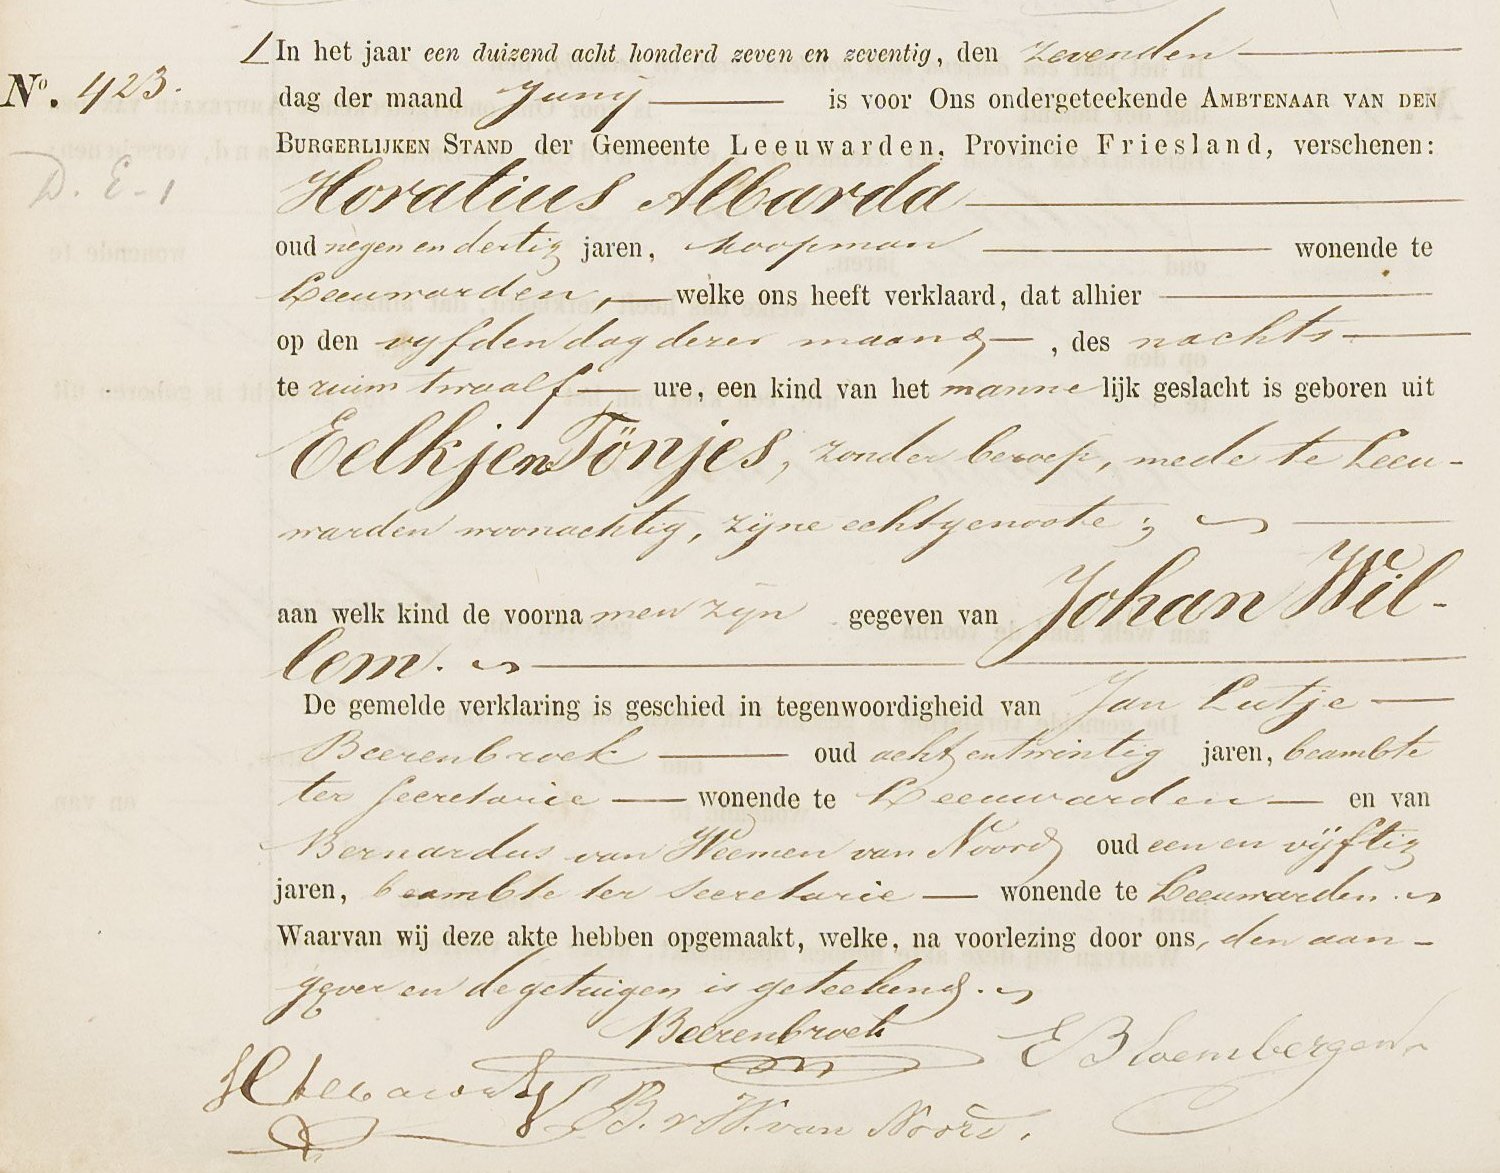 In het jaar een duizend acht honderd zeven en zeventig, den zevenden
No. 423.
dag der maand Junij is voor Ons ondergeteekende Ambtenaar van den
Burgerlijken Stand der Gemeente Leeuwarden, Provincie Friesland, verschenen:
D. E-1
Horatius Albarda
oud negen en dertig jaren, koopman wonende te
Leeuwarden, welke ons heeft verklaard, dat alhier
op den vyfden dag dezer maand, des nachts
te ruim twaalf ure, een kind van het mannelijk geslacht is geboren uit
Eelkjen Tönjes, zonder beroep, mede te Leeu-
warden woonachtig, zijne echtgenoote;
aan welk kind de voornamen zijn gegeven van Johan Wil-
lem.
De gemelde verklaring is geschied in tegenwoordigheid van Jan Lutje
Beerenbroek oud acht en twintig jaren, beambte
ter Secretarie wonende te Leeuwarden en van
Bernardus van Weemen van Noord oud een en vijftig
jaren, beambte ter secretarie wonende te Leeuwarden.
Waarvan wij deze akte hebben opgemaakt, welke, na voorlezing door ons, den aan-
gever en de getuigen is geteekend.
Beerenbroek
E Bloembergen
H Albarda
B. v W. van Noord.